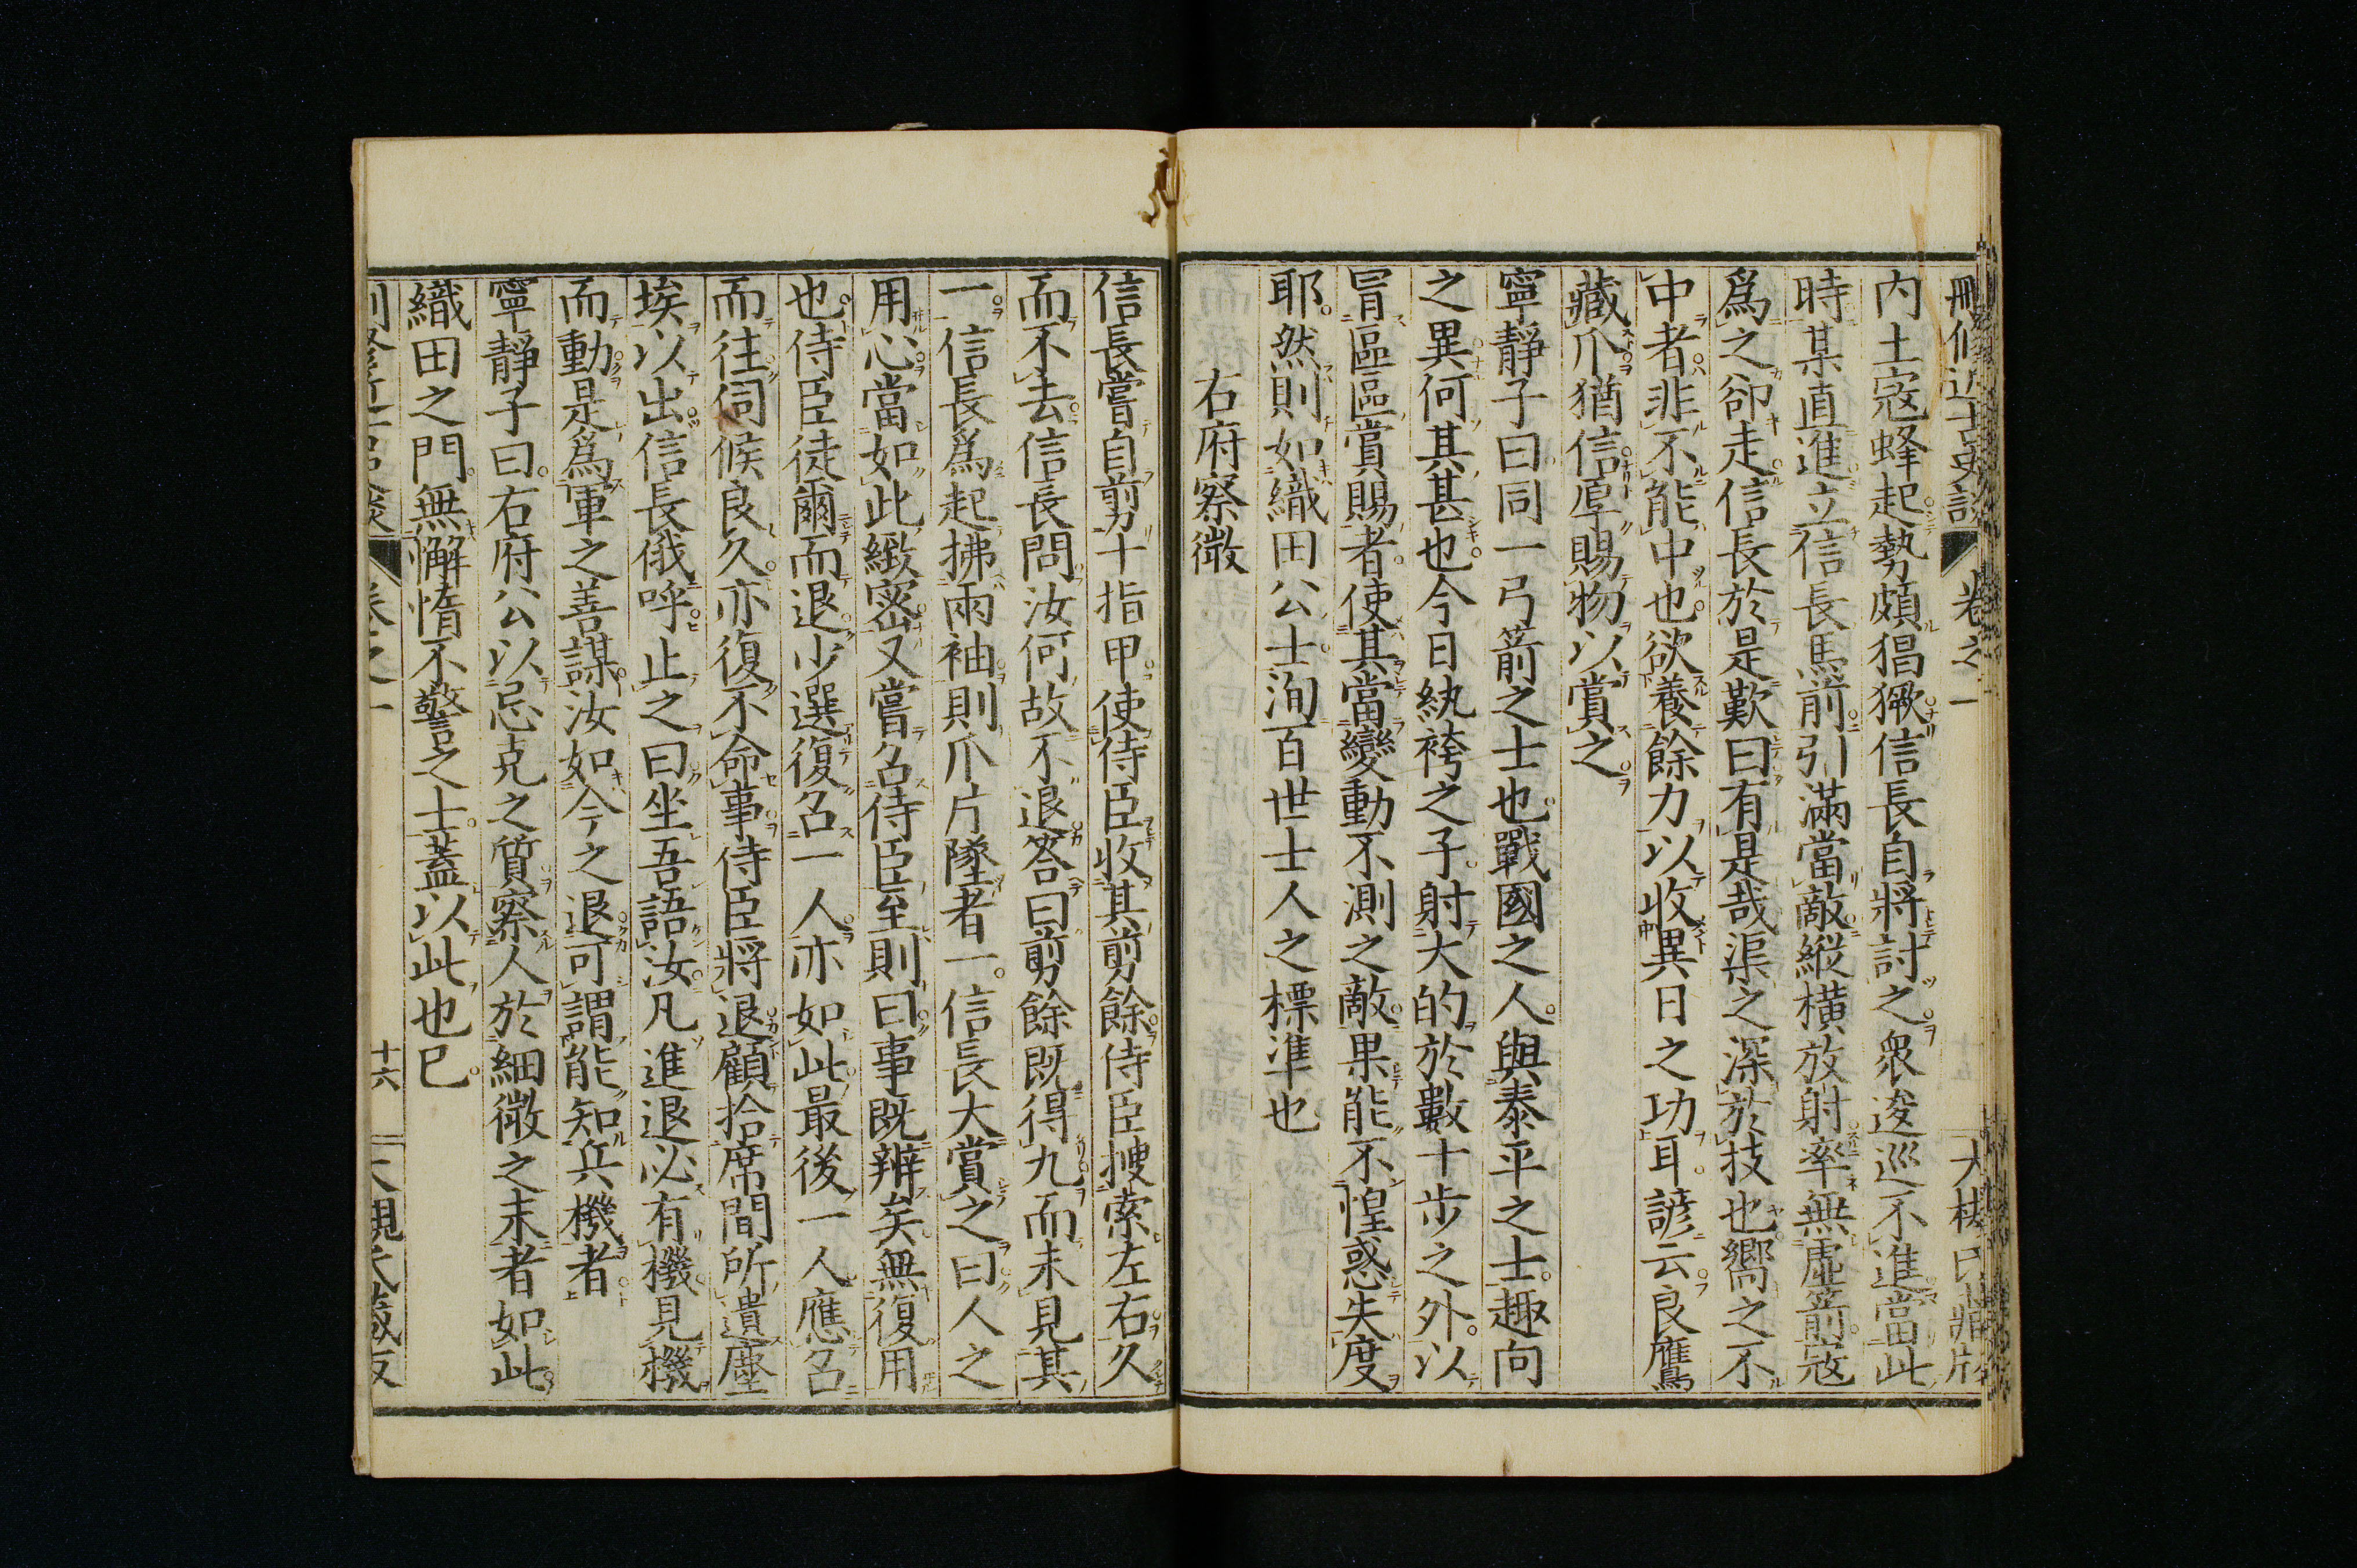 内土寇蜂起勢頗猖獗信長自將討之衆逡巡不進當此
時某直進立信長馬前引滿當敵縱横放射率無虛箭寇
爲之卻走信長於是歎曰有是哉渠之深於技也嚮之不
中者非不能中也欲養餘力以收異日之功耳諺云良鷹
藏爪猶信厚賜物以賞之
寧靜子曰同一弓箭之士也戰國之人與泰平之士趣向
之異何其甚也今日紈袴之子射大的於數十步之外以
冐區區賞賜者使其當變動不測之敵果能不惶惑失度
耶然則如織田公士洵百世士人之標準也
右府察微
信長嘗自剪十指甲使侍臣收其剪餘侍臣捜索左右久
而不去信長問汝何故不退答曰剪餘既得九而未見其
一信長爲起拂兩袖則爪片墜者一信長大賞之曰人之
用心當如此緻密又嘗召侍臣至則曰事既辨矣無復用
也侍臣徒爾而退少選復召一人亦如此最後一人應召
而往伺候良久亦復不命事侍臣將退顧拾席間所遺塵
埃以出信長俄呼止之曰坐吾語汝凡進退必有機見機
而動是爲軍之善謀汝如今之退可謂能知兵機者
寧靜子曰右府公以忌克之質察人於細微之末者如此
織田之門無懈惰不警之士蓋以此也已
卷之一
十六